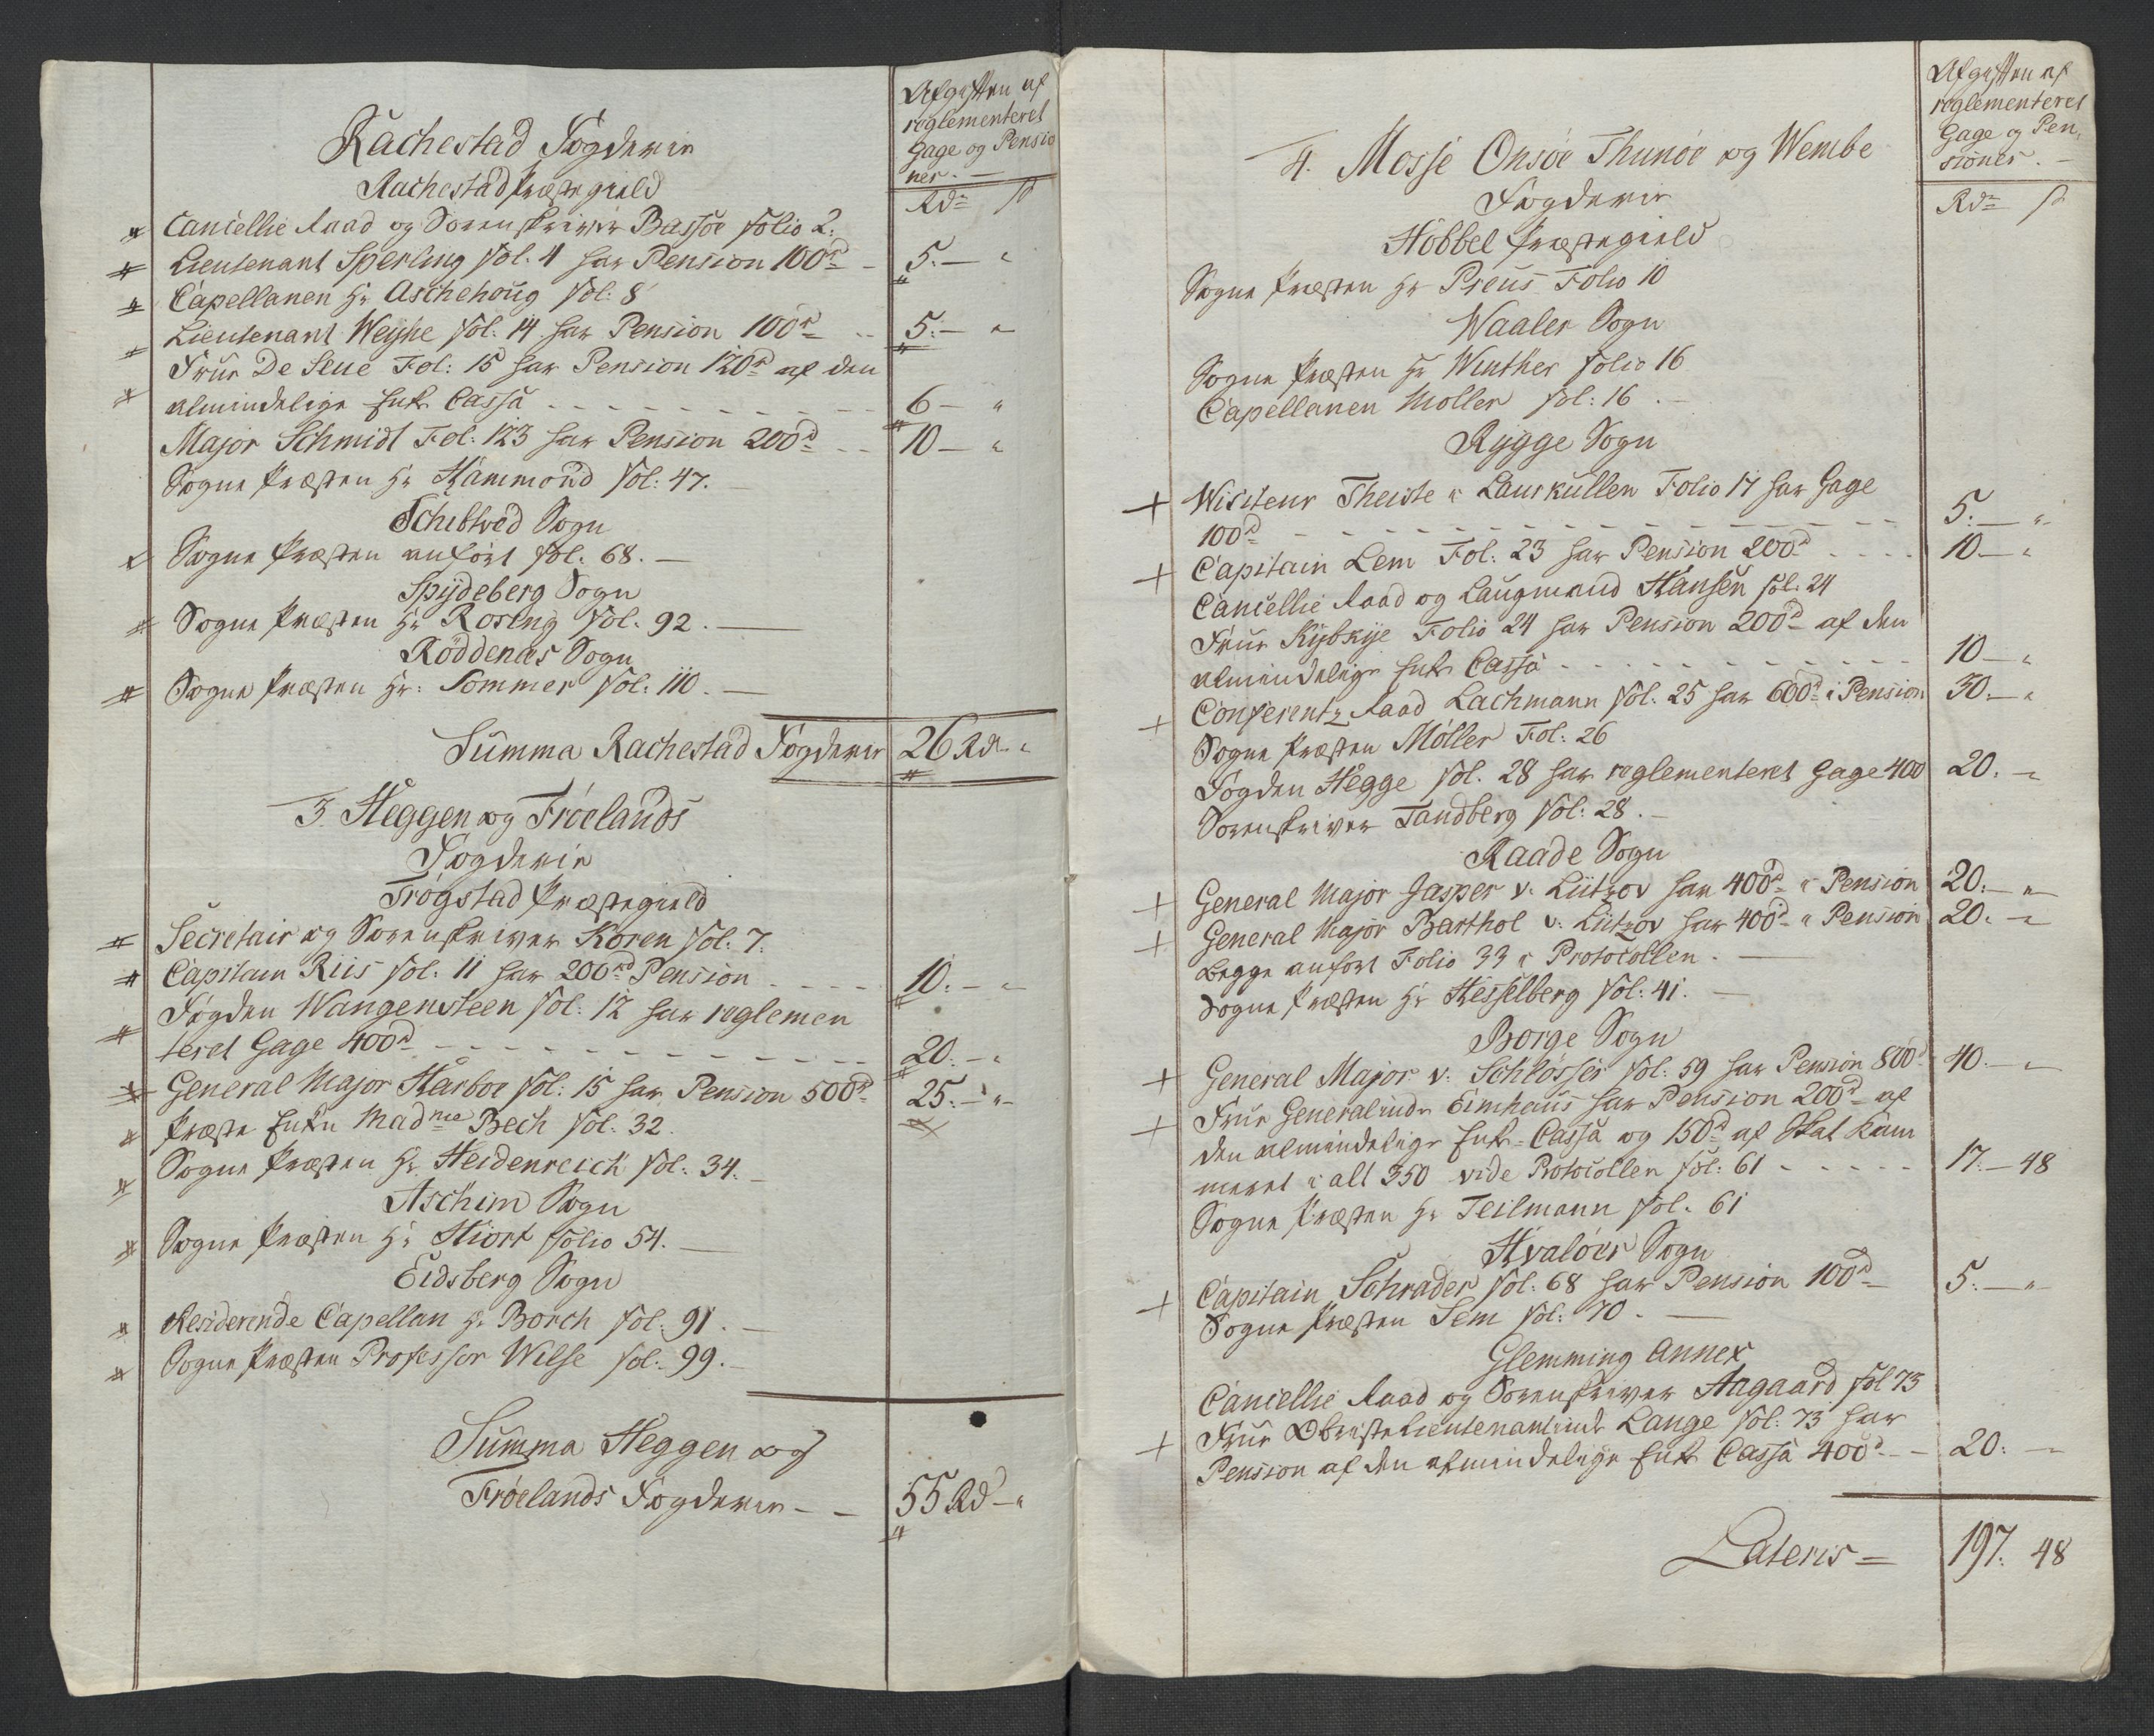 Afgiften af
reglementeret
Gage og Pensio
ner. —
Rdr ß
Rachestad Fogderie
Rachestad Præstegield
Cancellie Raad og Sorenskriver Bassøe folio 2.
Lieutenant Sperling fol. 4 har Pension 100rd - 5. — "
Capellanen Hr Aschehoug fol: 8
Lieutenant Weyhe fol: 14 har Pension 100rd - - 5. — "
Frue De Seue Fol: 15 har Pension 120rd af den
almindelige Enke Cassa - - - - - - - - - - 6 — "
Major Schmidt Fol: 123 har Pension 200rd - - 10 — "
Sogne Præsten Hr Hammond fol: 47.
Schibtved Sogn
Sogne Præsten anført fol. 68. —
Spydeberg Sogn
Sogne Præsten Hr Rosing fol. 92. —
Röddenæs Sogn
Sogne Præsten Hr: Sommer fol: 110. —
Summa Rachestad Fogderie 26 Rd. "
3. Heggen og Frøelands
Fogderie
Trøgstad Præstegield
Secretair og Sorenskriver Koren fol: 7.
Capitain Riis fol. 11 har 200rd Pension - - - - 10. — "
Fogden Wangensteen fol: 12 har reglemen
teret Gage 400rd - - - - - - - - - - - - 20. — "
General Major Harboe fol: 15 har Pension 500rd 25. — "
Præste Enken Madme Bech fol. 32.
Sogne Præsten Hr. Heidenreich fol. 34. —
Aschim Sogn
Sogne Præsten Hr Hiort folio 54. —
Eidsberg Sogn
Residerende Capellan Hr Borch fol. 91. —
Sogne Præsten Professor Wilse fol. 99. —
Summa Heggen og
Frøelands Fogderie - - 55 Rd — "
Afgiften af
reglementeret
Gage og Pen
sioner. —
Rdr ß
4. Mosse Onsøe Thunøe og Wembe
Fogderie
Hobbel Præstegield
Sogne Præsten Hr Preus Folio 10
Waaler Sogn
Sogne Præsten Hr Winther folio 16
Capellanen Moller fol: 16. —
Rygge Sogn
Wisiteur Theiste i Laurkullen Folio 17 har Gage
100rd - - - - - - - - - - - - - - - 5. — "
Capitain Lem Fol: 23 har Pension 200rd - - - - 10. — "
Cancellie Raad og Laugmand Hansen fol. 24
Frue Rÿbkÿe Folio 24 har Pension 200rd af den
almindelige Enke Cassa - - - - - - - - - - - 10 — "
Conferentz Raad Lachmann fol. 25 har 600rd i Pension 30. — "
Sogne Præsten Møller Fol: 26
Fogden Hegge fol. 28 har reglementeret Gage 400 20. — "
Sorenskriver Tandberg fol: 28. —
Raade Sogn
General Major Jasper v. Lützov har 400rd i Pension 20. — "
General Major Barthol v: Lützov har 400rd i Pension 20. — "
begge anført Folio 33 i Protocollen. —
Sogne Præsten Hr Hesselberg fol: 41. —
Borge Sogn
General Major v. Schlösser fol: 59 har Pension 800rd 40. — "
Frue Generalinde Eimhaus har Pension 200rd af
den almindelige Enke Cassa og 150rd af Skat Kam
meret i alt 350 vide Protocollen fol: 61 - - - - - 17. — 48
Sogne Præsten Hr Teilmann fol. 61
Hvaløer Sogn
Capitain Schrader fol. 68 har Pension 100rd 5. — "
Sogne Præsten Sem fol: 70. —
Glemming Annex
Cancellie Raad og Sorenskriver Aagaard fol 73
Frue Obristelieutenantinde Lange fol: 73 har
Pension af den almindelige Enke Cassa 400rd - - 20. — "
Lateris = 197. 48